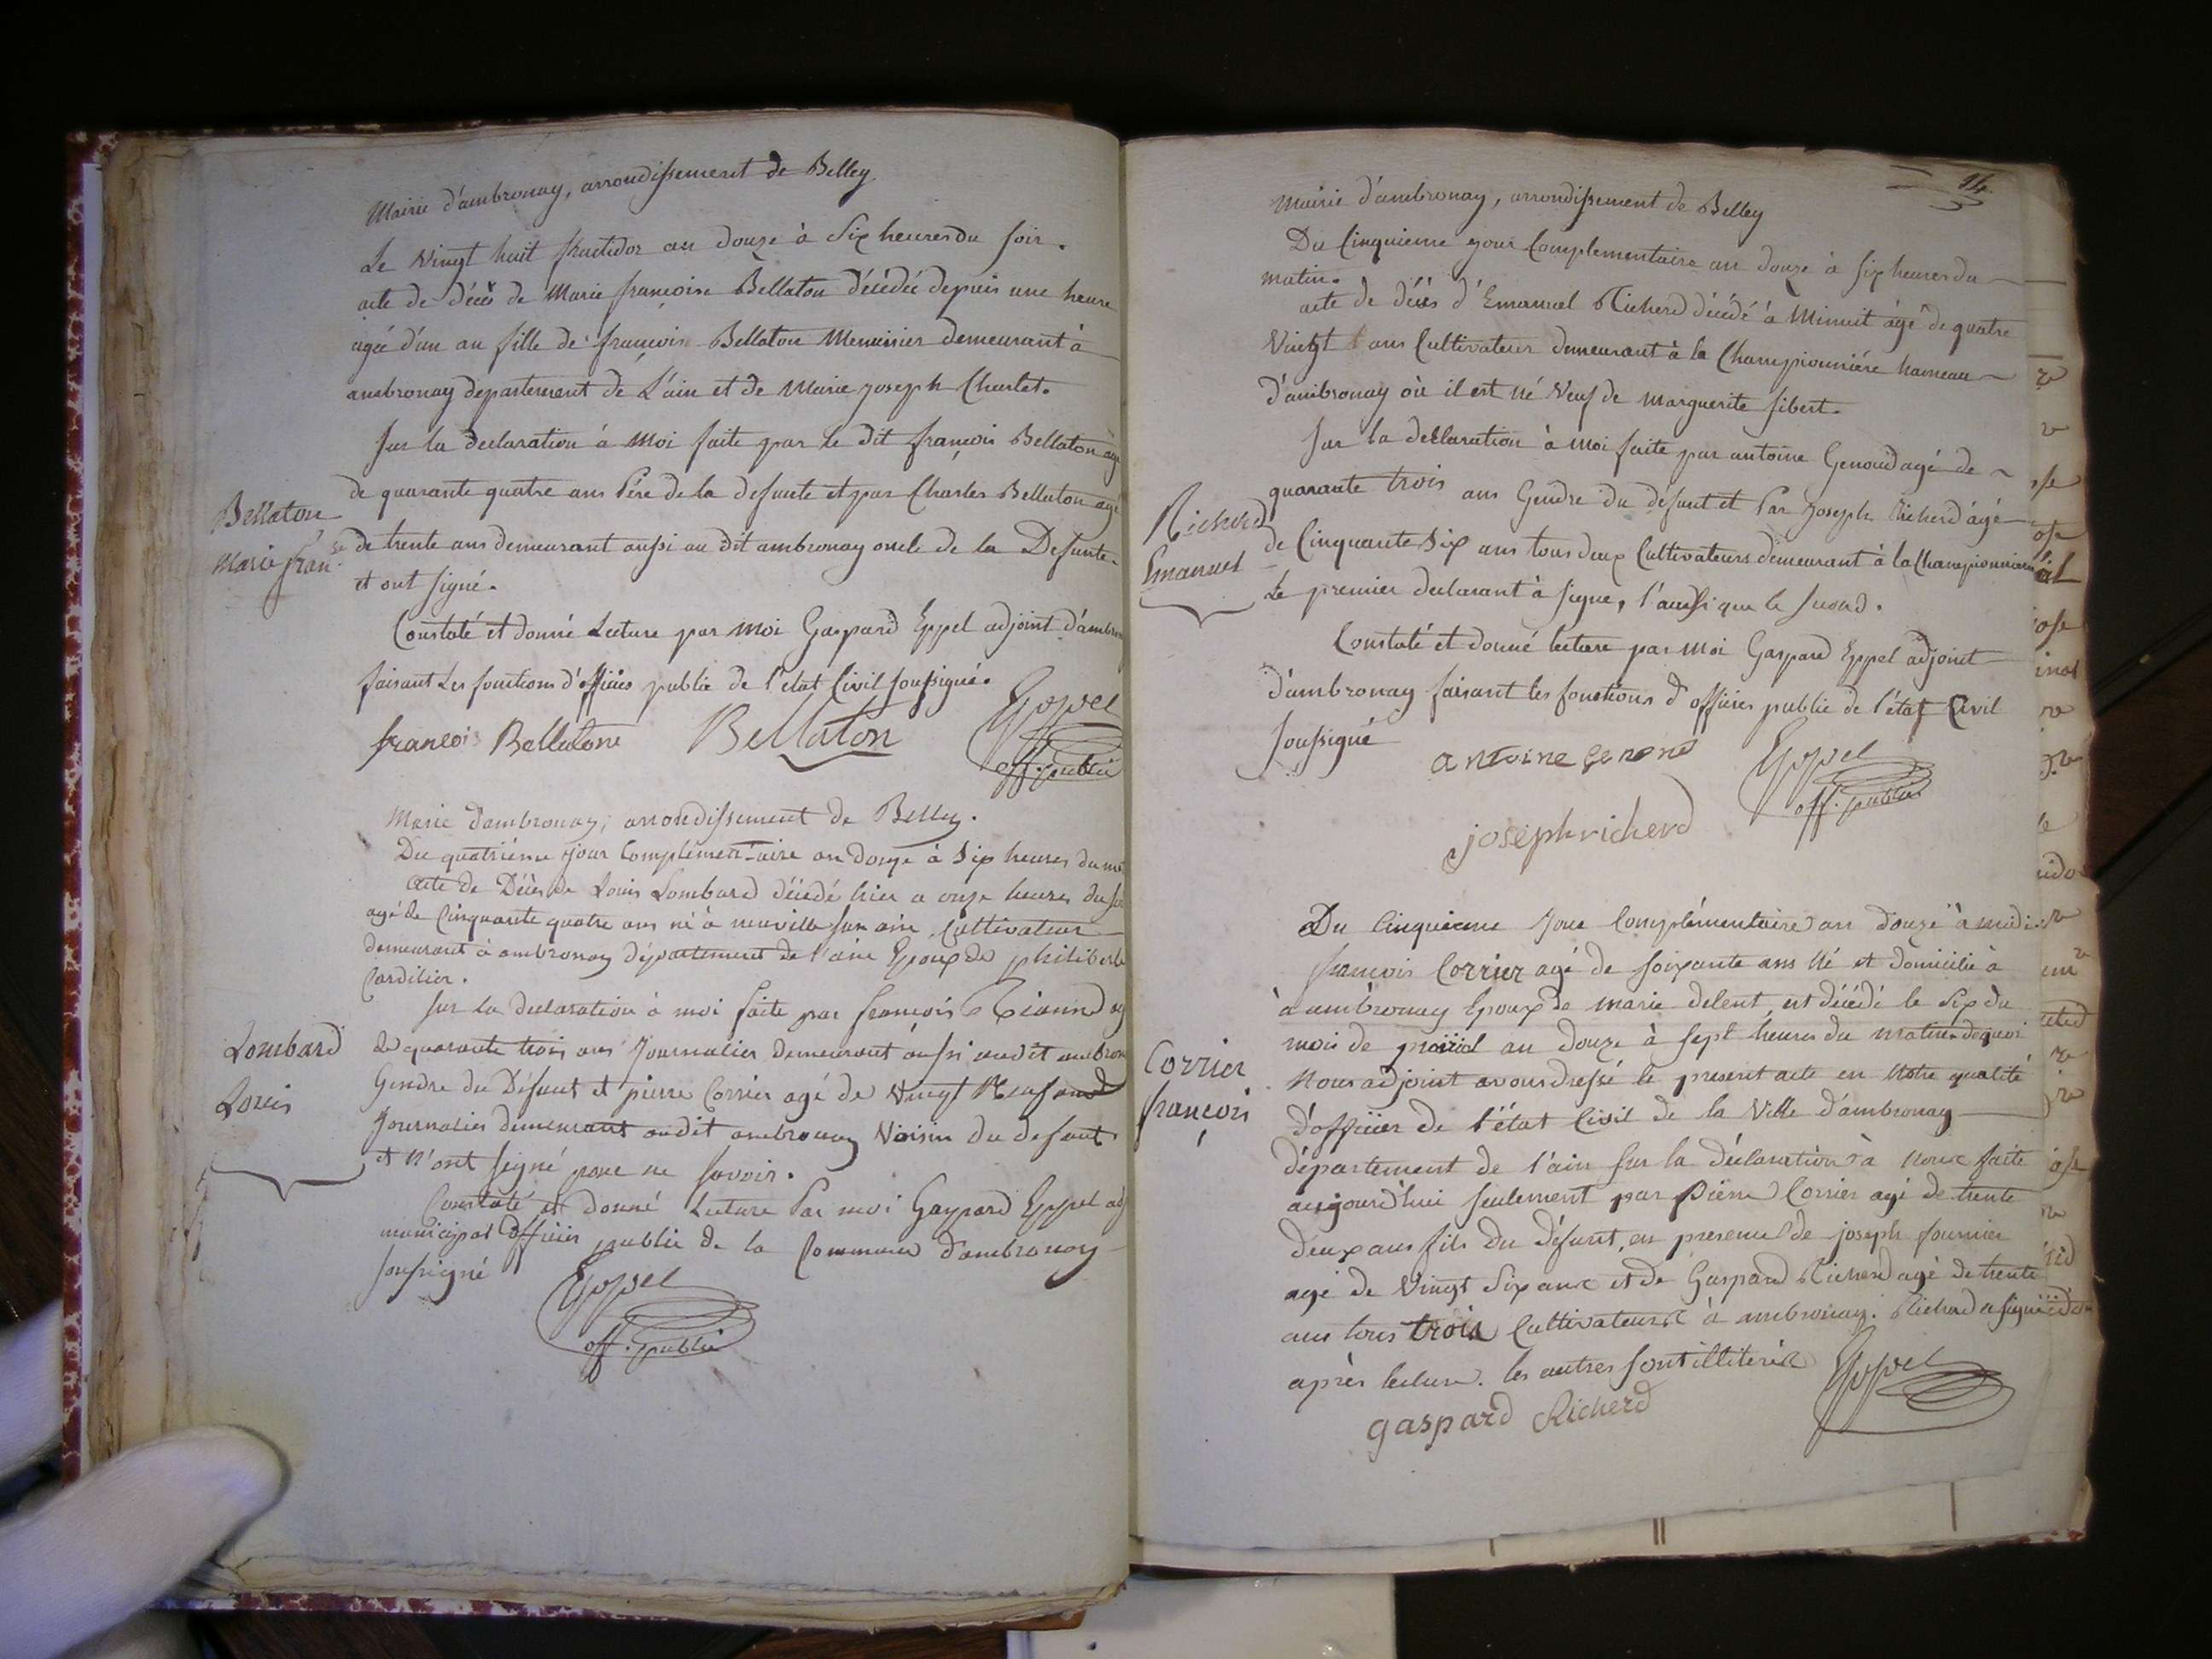 Mairie d'ambronay, arrondissement de Belley
Le Vingt huit fructidor an douze à Six heures du soir.
acte de décès de Marie françoise Bellaton décédée depuis une heure
agée d'un an fille de françois Bellaton Menuisier demeurant à
ambronay departement de L'ain et de Marie joseph Charlet.
Sur la declaration à Moi faite par le dit françois Bellaton agé
de quarante quatre ans Père de la defunte et par Charles Bellaton agé
Bellaton
Marie fran.se
de trente ans demeurant aussi au dit ambronay oncle de la Defunte.
et ont signé.
Constaté et donné Lecture par Moi Gaspard Eppel adjoint d'ambron
faisant Les fonctions d'officier public de l'etat Civil soussigné.
francois Bellatone Bellaton Eppel
off. public
Marie d'ambronay, arrondissement de Belley.
Du quatriéme jour Complémentaire an douze à Six heures du ma
Acte de Décès de Louis Lombard décédé hier a onze heures du so
agé de Cinquante quatre ans né à neuville sur ain, Cultivateur
demeurant à ambronay département de l'ain Epoux de philiberte
Cardilier.
Sur la declaration à moi faite par françois
Lombard
Louis
de quarante trois ans Journalier demeurant aussi audit ambron
Gendre du Défunt et pierre Corrier agé de Vingt Neuf ans
Journalier demeurant audit ambronay Voisin du defunt
et N'ont signé pour ne savoir.
Constaté et donné Lecture Par moi Gaspard Eppel adj
municipal Officier public de la Commune d'ambronay
soussigné Eppel
off. public
14
Mairie d'ambronay, arrondissement de Belley
Du Cinquieme jour Complementaire an douze à six heures du
matin.
acte de décès d'Emanuel Richerd décédé à Minuit âgé de quatre
Vingt ans Cultivateur demeurant à la Championniére hameau
d'ambronay où il est né Veuf de Marguerite sibert.
Sur la declaration à Moi faite par antoine Genoud agé de
quarante trois ans Gendre du défunt et Par Joseph Richerd âgé
Richerd
Emanuel
de Cinquante Six ans tous deux Cultivateurs demeurant à la Championniere
Le premier declarant à signe, l'aussi que le second.
Constaté et donné lecture par Moi Gaspard Eppel adjoint
d'ambronay faisant les fonctions d'officier public de l'état Civil
soussigné
antoine genond Eppel
off. public
joseph richerd
Du Cinquieme Jour Complémentaire an douze à midi
françois Corrier agé de soixante ans Né et domicilié à
à ambronay Epoux de marie delent, est décédé le Six du
mois de prairial an douze à sept heures du matin dequoi
Corrier
françois
Nous adjoint avons dressé le present acte en Notre qualité
d'officier de l'état Civil de la Ville d'ambronay
département de l'ain sur la déclaration à Nous faite
aujourd'hui seulement par Pierre Corrier agé de trente
deux ans fils du Défunt, en presence de joseph fournier
agé de Vingt Six ans et de Gaspard Richerd agé de trente
ans tous trois Cultivateurs à ambronay. Richerd a signé
après lecture. les autres sont illiterés Eppel
gaspard Richerd